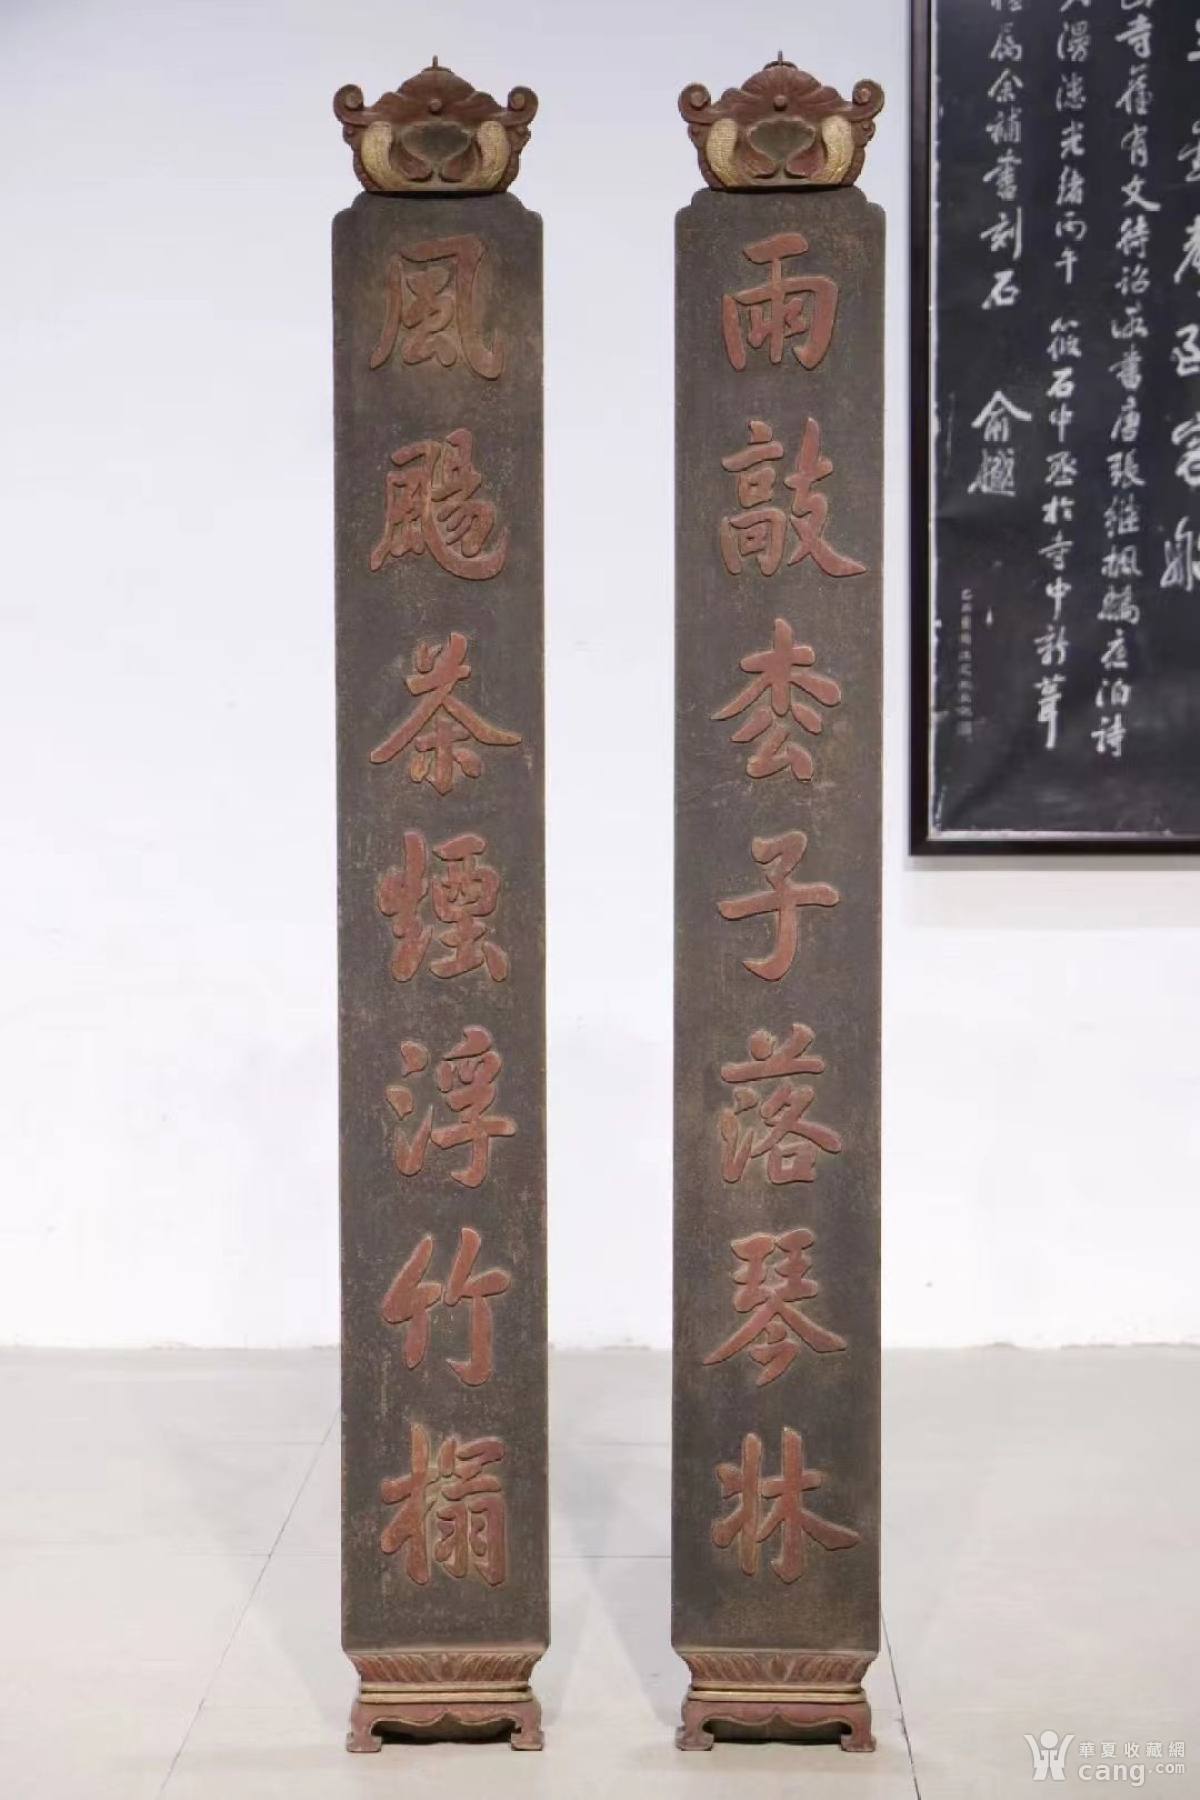 聲到客船
山寺舊有文待詔所書唐張繼楓橋夜泊詩
久漫漶光緒丙午 筱石中丞於寺中新葺
楹屬余補書刻石 俞樾
雨敲枩子落琴牀
風颺茶煙浮竹榻
華夏收藏網
cang.com